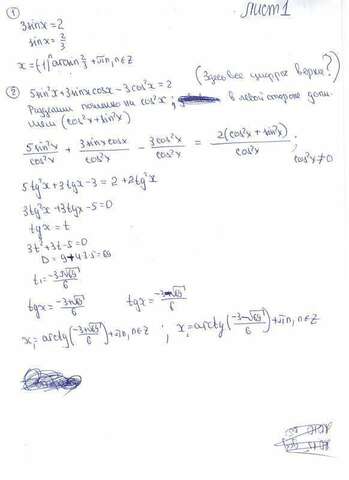 Лист 1
①
3sinx=2
sinx=2/3
x=(-1)ⁿ arcsin 2/3 + πn, n∈Z
② 5sin²x+3sinxcosx-3cos²x=2
(Здесь все цифры верны?)
Разделим почленно на cos²x; в левой стороне допишем (cos²x+sin²x)
5sin²x/cos²x + 3sinxcosx/cos²x - 3cos²x/cos²x = 2(cos²x+sin²x)/cos²x ; cos²x≠0
5tg²x+3tgx-3=2+2tg²x
3tg²x+3tgx-5=0
tgx=t
3t²+3t-5=0
D=9+4·3·5=69
t₁=(-3±√69)/6
tgx=(-3+√69)/6 tgx=(-3-√69)/6
x₁=arctg((-3+√69)/6)+πn, n∈Z ; x₂=arctg((-3-√69)/6)+πn, n∈Z